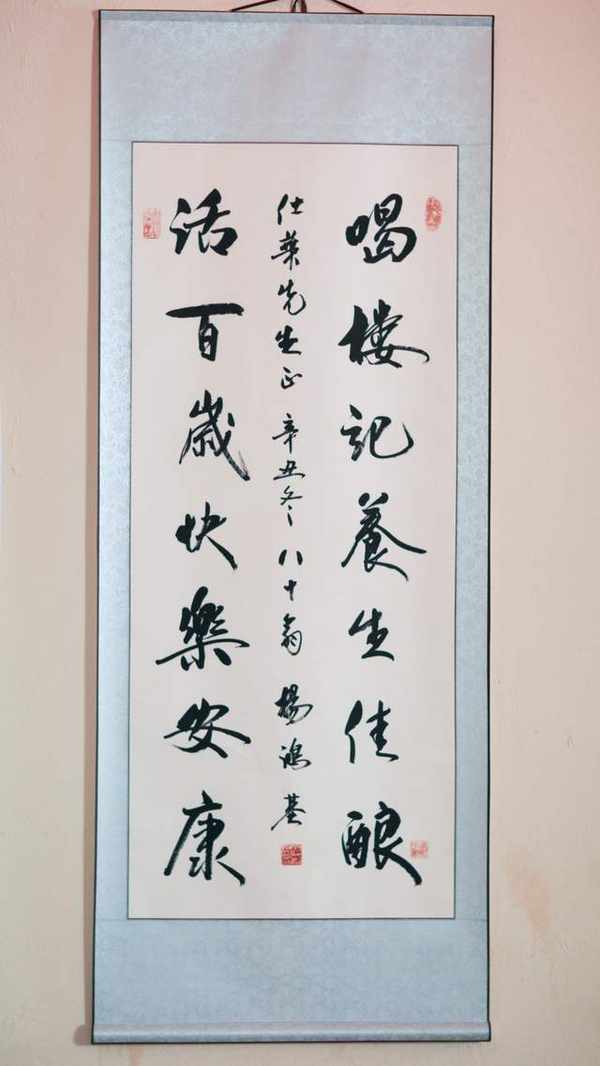 喝楼記養生佳酿
仕英先生正 辛丑冬 八十翁 楊鴻基
活百歳快樂安康